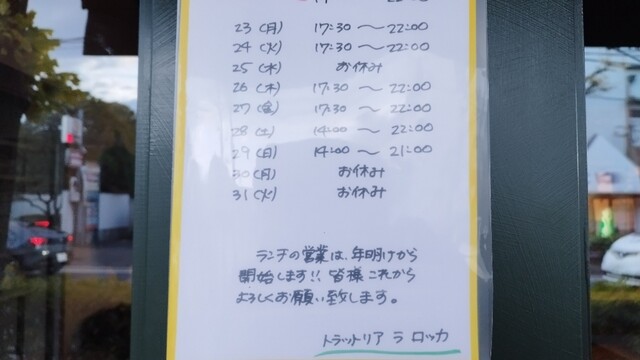 23(月) 17:30 〜 22:00
24(火) 17:30 〜 22:00
25(水) お休み
26(木) 17:30 〜 22:00
27(金) 17:30 〜 22:00
28(土) 14:00 〜 22:00
29(日) 14:00 〜 21:00
30(月) お休み
31(火) お休み
ランチの営業は、年明けから
開始します!! 皆様これから
よろしくお願い致します。
トラットリア ラ ロッカ